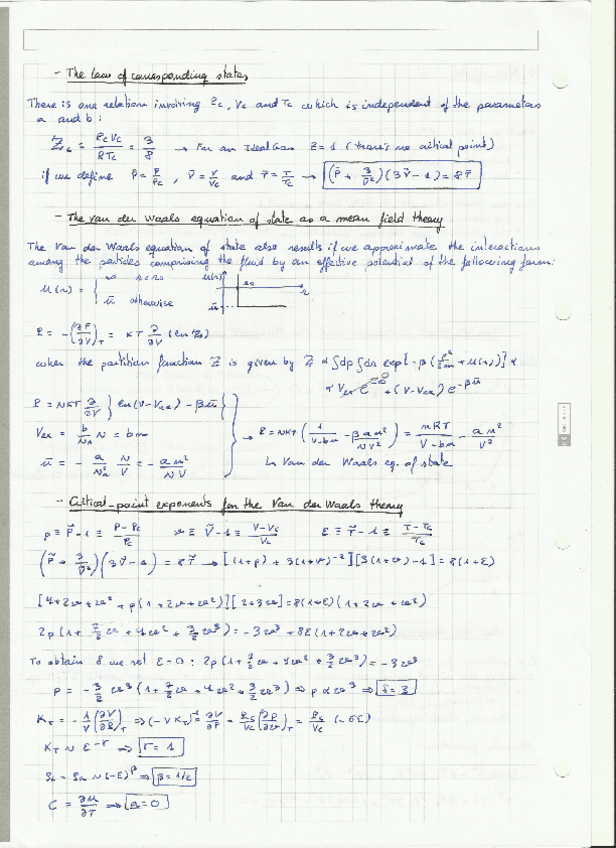 - The law of corresponding states
There is one relation involving Pc, Vc and Tc which is independent of the parameters
a and b:
Zc = PcVc/RTc = 3/8 → For an Ideal Gas Z = 1 (there's no critical point)
if we define P̃ = P/Pc, Ṽ = V/Vc and T̃ = T/Tc → (P̃ + 3/Ṽ²)(3Ṽ - 1) = 8T̃
- The van der Waals equation of state as a mean field theory
The Van der Waals equation of state also results if we approximate the interactions
among the particles comprising the fluid by an effective potential of the following form:
u(r) = { ∞ r<r₀
ū otherwise
P = -(∂F/∂V)_T = KT ∂/∂V (ln Z)
when the partition function Z is given by Z ∝ ∫dp∫dr exp[-β(p²/2m + u(r))] ∝
∝ Vex e^-∞ + (V-Vex) e^-βū
P = NKT ∂/∂V { ln(V-Vex) - βū }
Vex = b/N_A N = bn
→ P = NKT (1/(V-bn) - β an²/NV²) = nRT/(V-bn) - an²/V²
ū = - a/N_A² N/V = - an²/NV
↳ Van der Waals eq. of state
- Critical-point exponents for the Van der Waals theory
p ≡ P̃-1 ≡ (P-Pc)/Pc v ≡ Ṽ-1 ≡ (V-Vc)/Vc ε ≡ T̃-1 ≡ (T-Tc)/Tc
(P̃ + 3/Ṽ²)(3Ṽ-1) = 8T̃ → [(1+p) + 3(1+v)⁻²][3(1+v)-1] = 8(1+ε)
[4+2v+v² + p(1+2v+v²)][2+3v] = 8(1+ε)(1+2v+v²)
2p(1 + 7/2 v + 4v² + 3/2 v³) = -3v³ + 8ε(1+2v+v²)
To obtain δ we set ε=0: 2p(1+7/2 v + 4v² + 3/2 v³) = -3v³
p = -3/2 v³ (1+7/2 v + 4v² + 3/2 v³) ⇒ p ∝ v³ ⇒ δ = 3
K_T = -1/V (∂V/∂P)_T ⇒ (-V K_T)⁻¹ = ∂V/∂P = Pc/Vc (∂p/∂v)_T = Pc/Vc (-6ε)
K_T ~ ε^-γ ⇒ γ = 1
~ (-ε)^β ⇒ β = 1/2
C = ∂u/∂T ⇒ α = 0